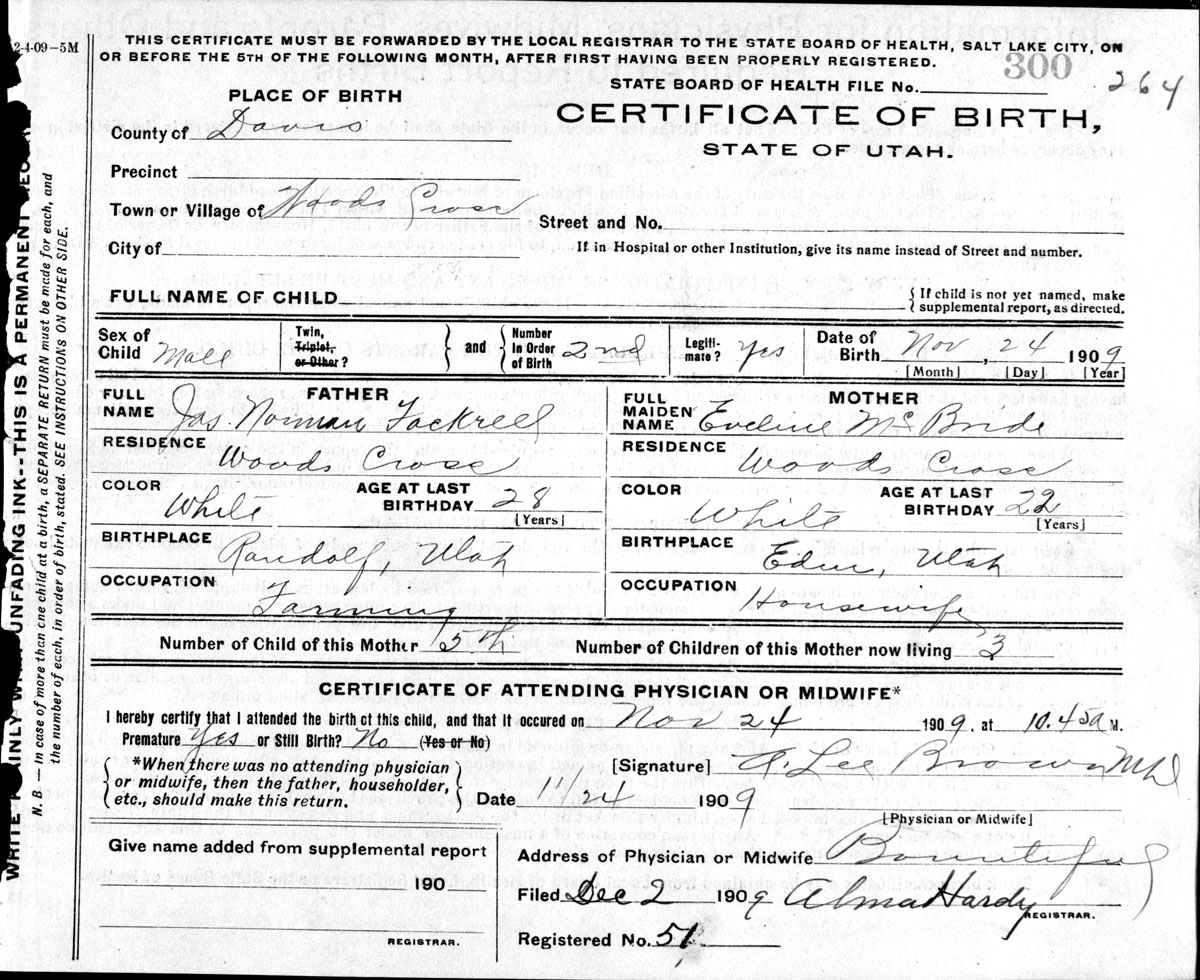 2-4-09-5M
THIS CERTIFICATE MUST BE FORWARDED BY THE LOCAL REGISTRAR TO THE STATE BOARD OF HEALTH, SALT LAKE CITY, ON
OR BEFORE THE 5TH OF THE FOLLOWING MONTH, AFTER FIRST HAVING BEEN PROPERLY REGISTERED.
300
264
STATE BOARD OF HEALTH FILE No.
PLACE OF BIRTH
CERTIFICATE OF BIRTH,
STATE OF UTAH.
County of Davis
Precinct
Town or Village of Woods Cross
Street and No.
City of
If in Hospital or other Institution, give its name instead of Street and number.
FULL NAME OF CHILD
{ If child is not yet named, make
supplemental report, as directed.
Sex of Child Male
Twin, Triplet, or Other? } and { Number In Order of Birth 2nd
Legiti-mate? Yes
Date of Birth Nov, 24 1909
[Month] [Day] [Year]
FATHER
FULL NAME Jas. Norman Fackrell
MOTHER
FULL MAIDEN NAME Eveline McBride
RESIDENCE Woods Cross
RESIDENCE Woods Cross
COLOR White AGE AT LAST BIRTHDAY 28 [Years]
COLOR White AGE AT LAST BIRTHDAY 22 [Years]
BIRTHPLACE Randolf, Utah
BIRTHPLACE Eden, Utah
OCCUPATION Farming
OCCUPATION Housewife
Number of Child of this Mother 5th Number of Children of this Mother now living 3
CERTIFICATE OF ATTENDING PHYSICIAN OR MIDWIFE*
I hereby certify that I attended the birth of this child, and that it occured on Nov 24 1909. at 10.45a M.
Premature Yes or Still Birth? No (Yes or No)
{ *When there was no attending physician
or midwife, then the father, householder,
etc., should make this return. }
[Signature] A. Lee Brown MD
Date 11/24 1909
[Physician or Midwife]
Give name added from supplemental report
190
REGISTRAR.
Address of Physician or Midwife Bountiful
Filed Dec 2 1909 Alma Hardy
REGISTRAR.
Registered No. 51
N. B.—In case of more than one child at a birth, a SEPARATE RETURN must be made for each, and
the number of each, in order of birth, stated. SEE INSTRUCTIONS ON OTHER SIDE.
UNFADING INK--THIS IS A PERMANENT